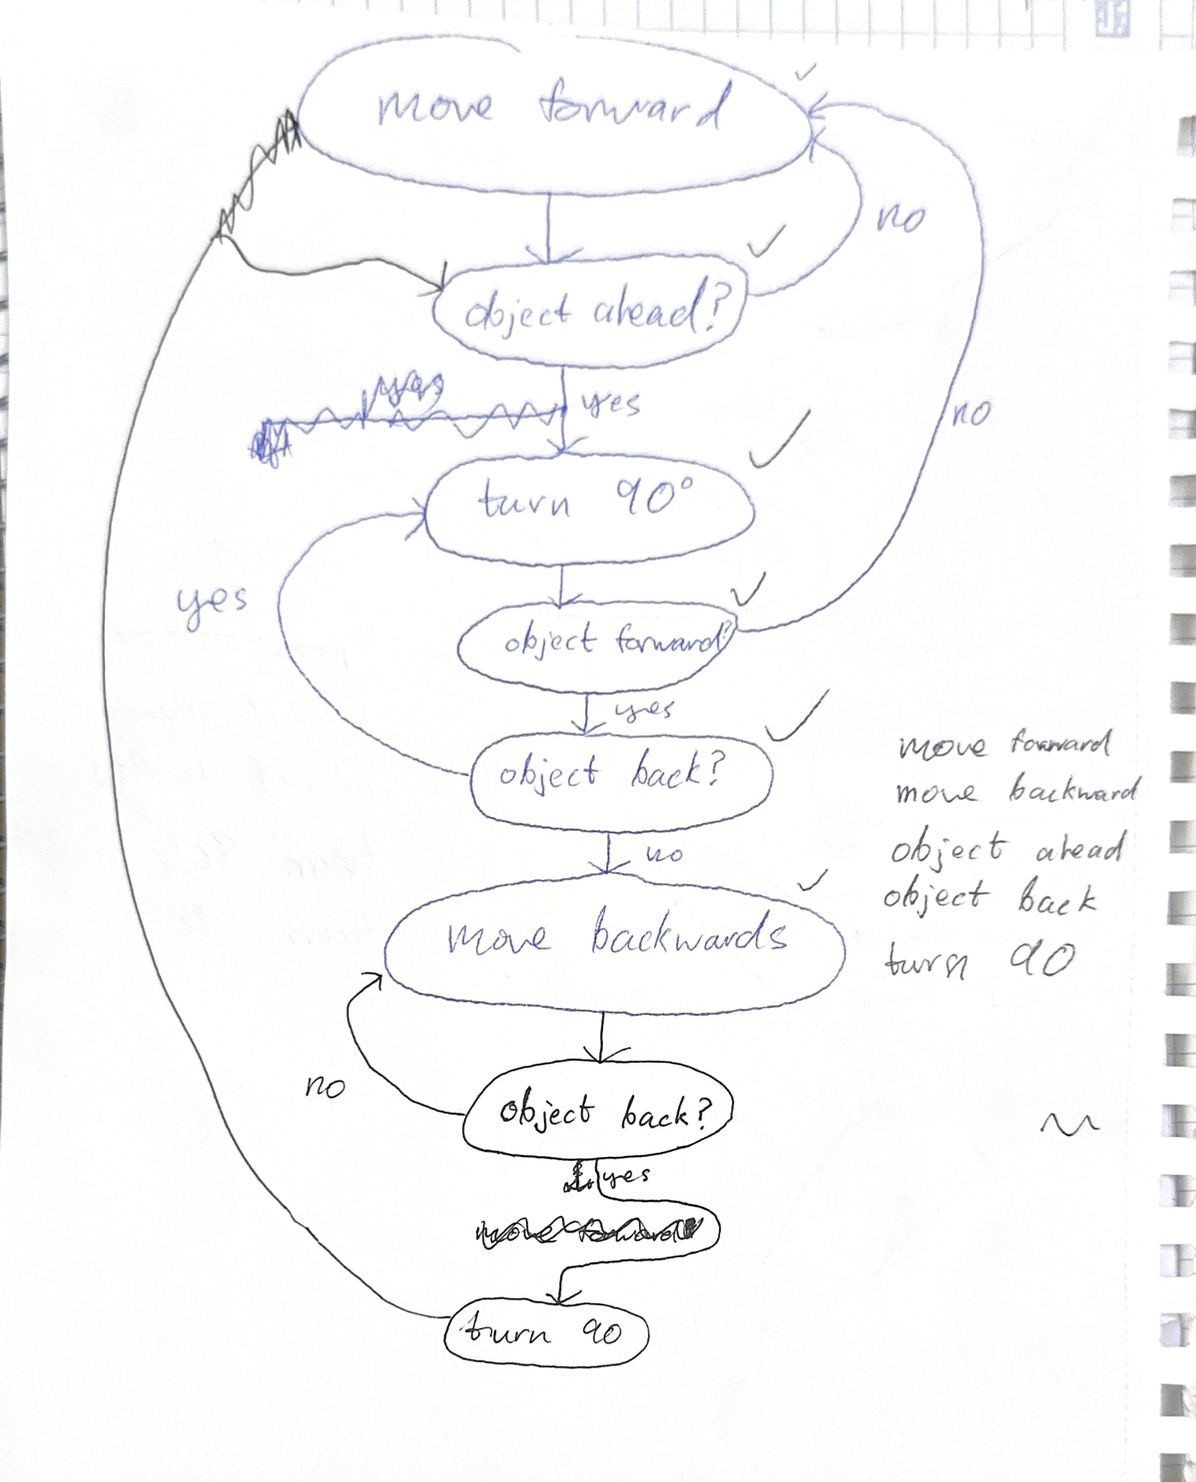 move forward
no
object ahead?
yes
yes
no
turn 90°
yes
object forward?
yes
object back?
no
move backwards
no
object back?
yes
move forward
turn 90
move forward
move backward
object ahead
object back
turn 90